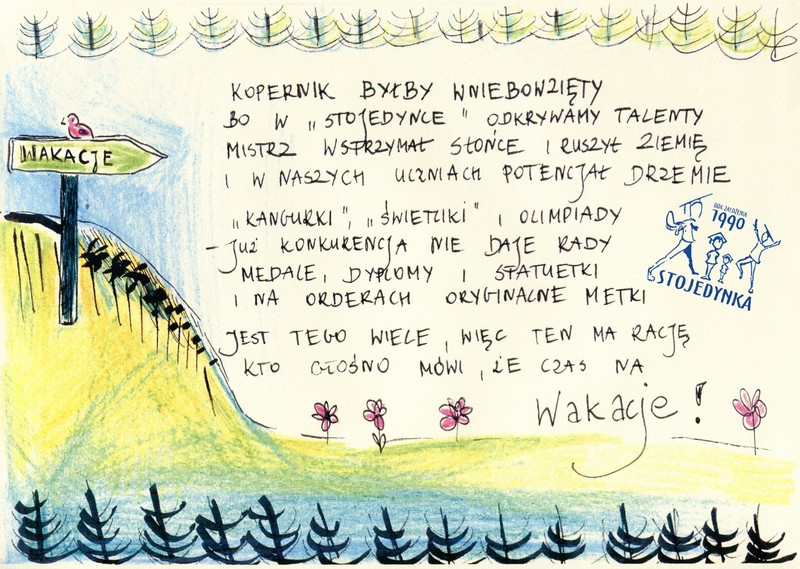 WAKACJE
KOPERNIK BYŁBY WNIEBOWZIĘTY
BO W „STOJEDYNCE" ODKRYWAMY TALENTY
MISTRZ WSTRZYMAŁ SŁOŃCE I RUSZYŁ ZIEMIĘ
I W NASZYCH UCZNIACH POTENCJAŁ DRZEMIE
„KANGURKI", „ŚWIETLIKI" I OLIMPIADY
– JUŻ KONKURENCJA NIE DAJE RADY
MEDALE, DYPLOMY I STATUETKI
I NA ORDERACH ORYGINALNE METKI
JEST TEGO WIELE, WIĘC TEN MA RACJĘ
KTO GŁOŚNO MÓWI, ŻE CZAS NA
Wakacje!
ROK ZAŁOŻENIA
1990
STOJEDYNKA